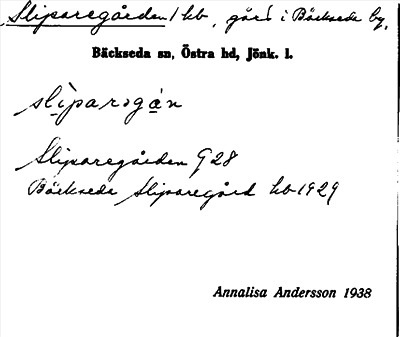 Sliparegården / kb, gård i Bäckseda by.
Bäckseda sn, Östra hd, Jönk. l.
slìparəgạ́n
Sliparegården G28
Bäckseda Sliparegård kb 1929
Annalisa Andersson 1938